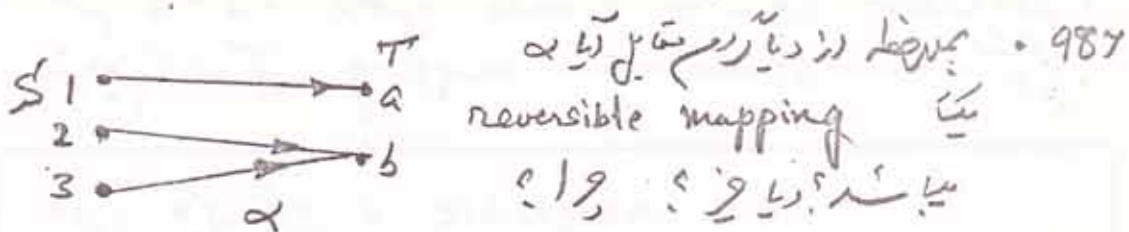 987 . بملاحظه در دیاگرام مقابل آیا α
یک reversible mapping
میباشد؟ و یا خیر؟ چرا؟
S T
1 a
2 b
3
α